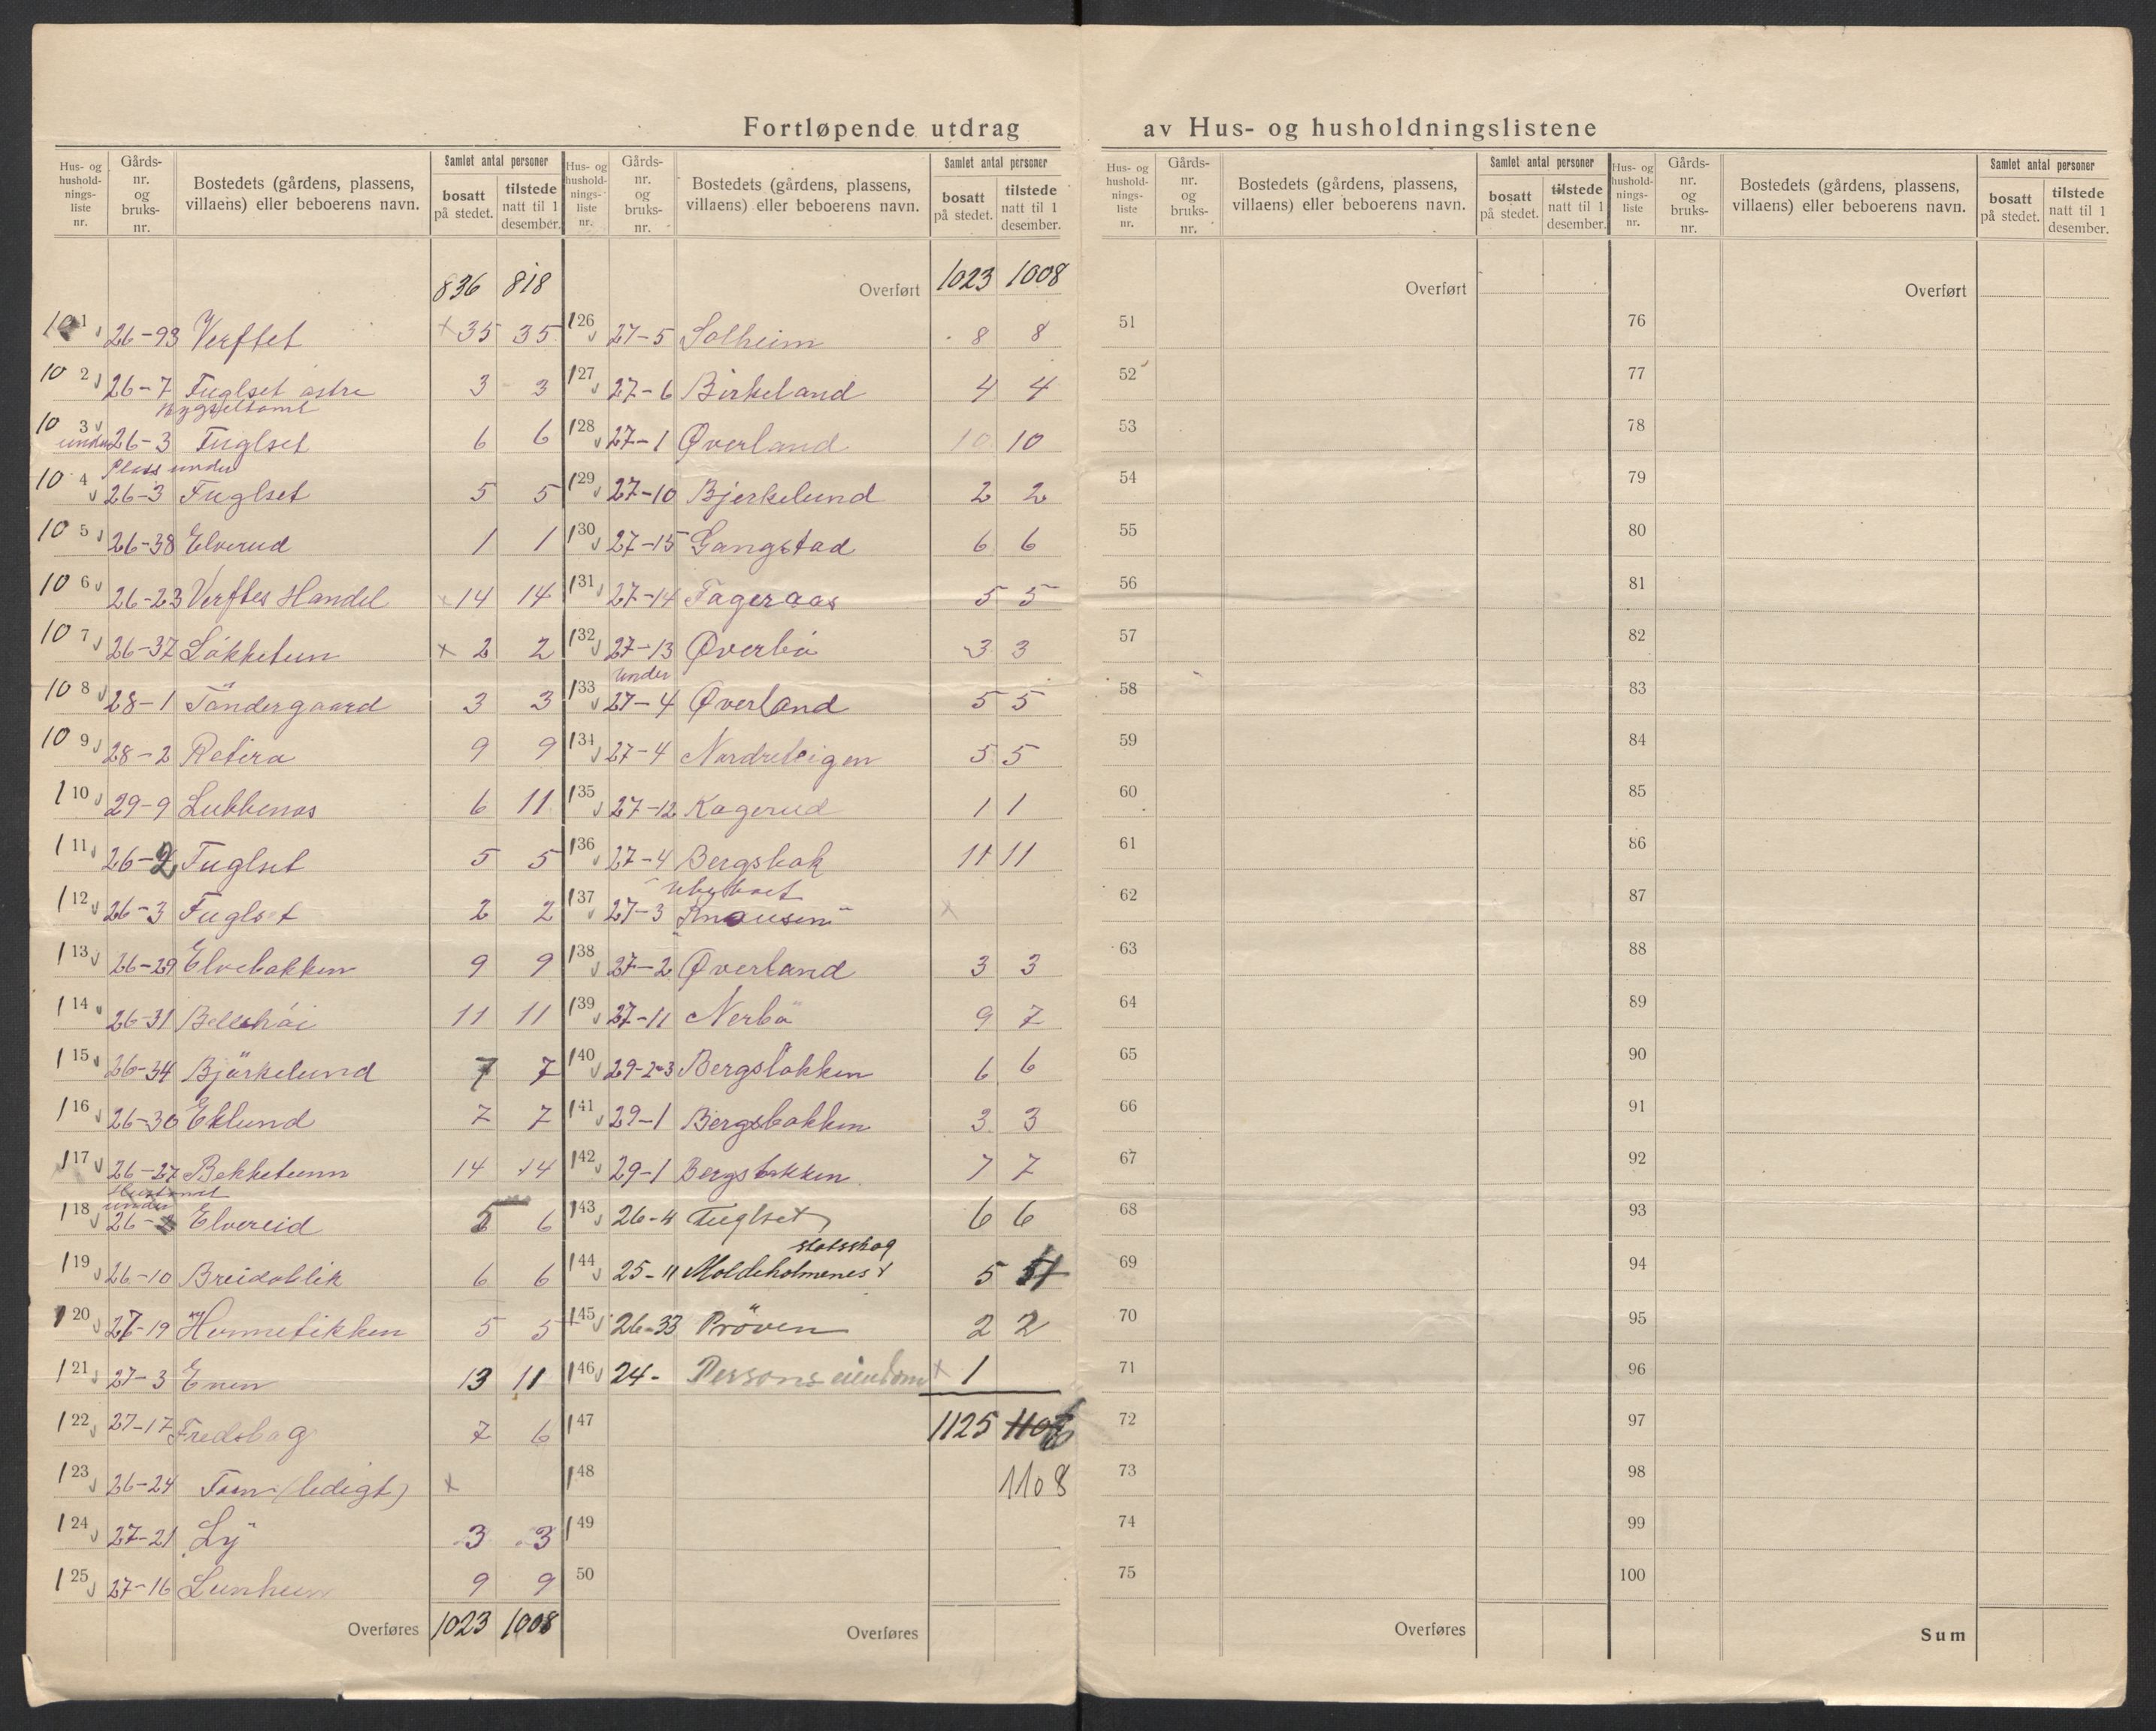 Fortløpende utdrag av Hus- og husholdningslistene
Hus- og husholdnings-liste nr. Gårds-nr. og bruks-nr. Bostedets (gårdens, plassens, villaens) eller beboerens navn. Samlet antal personer bosatt på stedet. tilstede natt til 1 desember.
836 818
101 26-93 Verftet x 35 35
102 26-7 Fuglset østre 3 3
Bygseltomt
103 under 26-3 Fuglset 6 6
Plass under
104 26-3 Fuglset 5 5
105 26-38 Elverud 1 1
106 26-23 Verftes Handel x 14 14
107 26-37 Løkketun x 2 2
108 28-1 Töndergaard 3 3
109 28-2 Retira 9 9
110 29-9 Lubbenes 6 11
111 26-2 Fuglset 5 5
112 26-3 Fuglset 2 2
113 26-29 Elvebakken 9 9
114 26-31 11 11
115 26-34 Björkelund 7 7
116 26-30 Eklund 7 7
117 26-27 Bekketunn 14 14
under
118 26- Elvereid 5 6
119 26-10 Breidablik 6 6
120 27-19 5 5
121 27-3 Enen 13 11
122 27-17 Fredsbag 7 6
123 26-24 Tom (ledigt) x
124 27-21 "Ly" 3 3
125 27-16 Lunheim 9 9
Overføres 1023 1008
Hus- og husholdnings-liste nr. Gårds-nr. og bruks-nr. Bostedets (gårdens, plassens, villaens) eller beboerens navn. Samlet antal personer bosatt på stedet. tilstede natt til 1 desember.
Overført 1023 1008
126 27-5 Solheim 8 8
127 27-6 Birkeland 4 4
128 27-1 Øverland 10 10
129 27-10 Bjerkelund 2 2
130 27-15 Gangstad 6 6
131 27-14 Fageraas 5 5
132 27-13 Øverbö 3 3
under
133 27-4 Øverland 5 5
134 27-4 Nordreteigen 5 5
135 27-12 Kagerud 1 1
136 27-4 Bergsbak 11 11
Ubyboet
137 27-3 "Knausen" x
138 27-2 Øverland 3 3
139 27-11 Nerbö 9 7
140 29-2-3 Bergsbakken 6 6
141 29-1 Bergsbakken 3 3
142 29-1 Bergsbakken 7 7
143 26-4 Fuglset 6 6
statsskog
144 25-11 Moldeholmenes 5
145 26-33 Pröven 2 2
146 24- Persons eiendom x 1
147 1125
148 1108
149
50
Overføres
Hus- og husholdnings-liste nr. Gårds-nr. og bruks-nr. Bostedets (gårdens, plassens, villaens) eller beboerens navn. Samlet antal personer bosatt på stedet. tilstede natt til 1 desember.
Overført
51
52
53
54
55
56
57
58
59
60
61
62
63
64
65
66
67
68
69
70
71
72
73
74
75
Overføres
Hus- og husholdnings-liste nr. Gårds-nr. og bruks-nr. Bostedets (gårdens, plassens, villaens) eller beboerens navn. Samlet antal personer bosatt på stedet. tilstede natt til 1 desember.
Overført
76
77
78
79
80
81
82
83
84
85
86
87
88
89
90
91
92
93
94
95
96
97
98
99
100
Sum